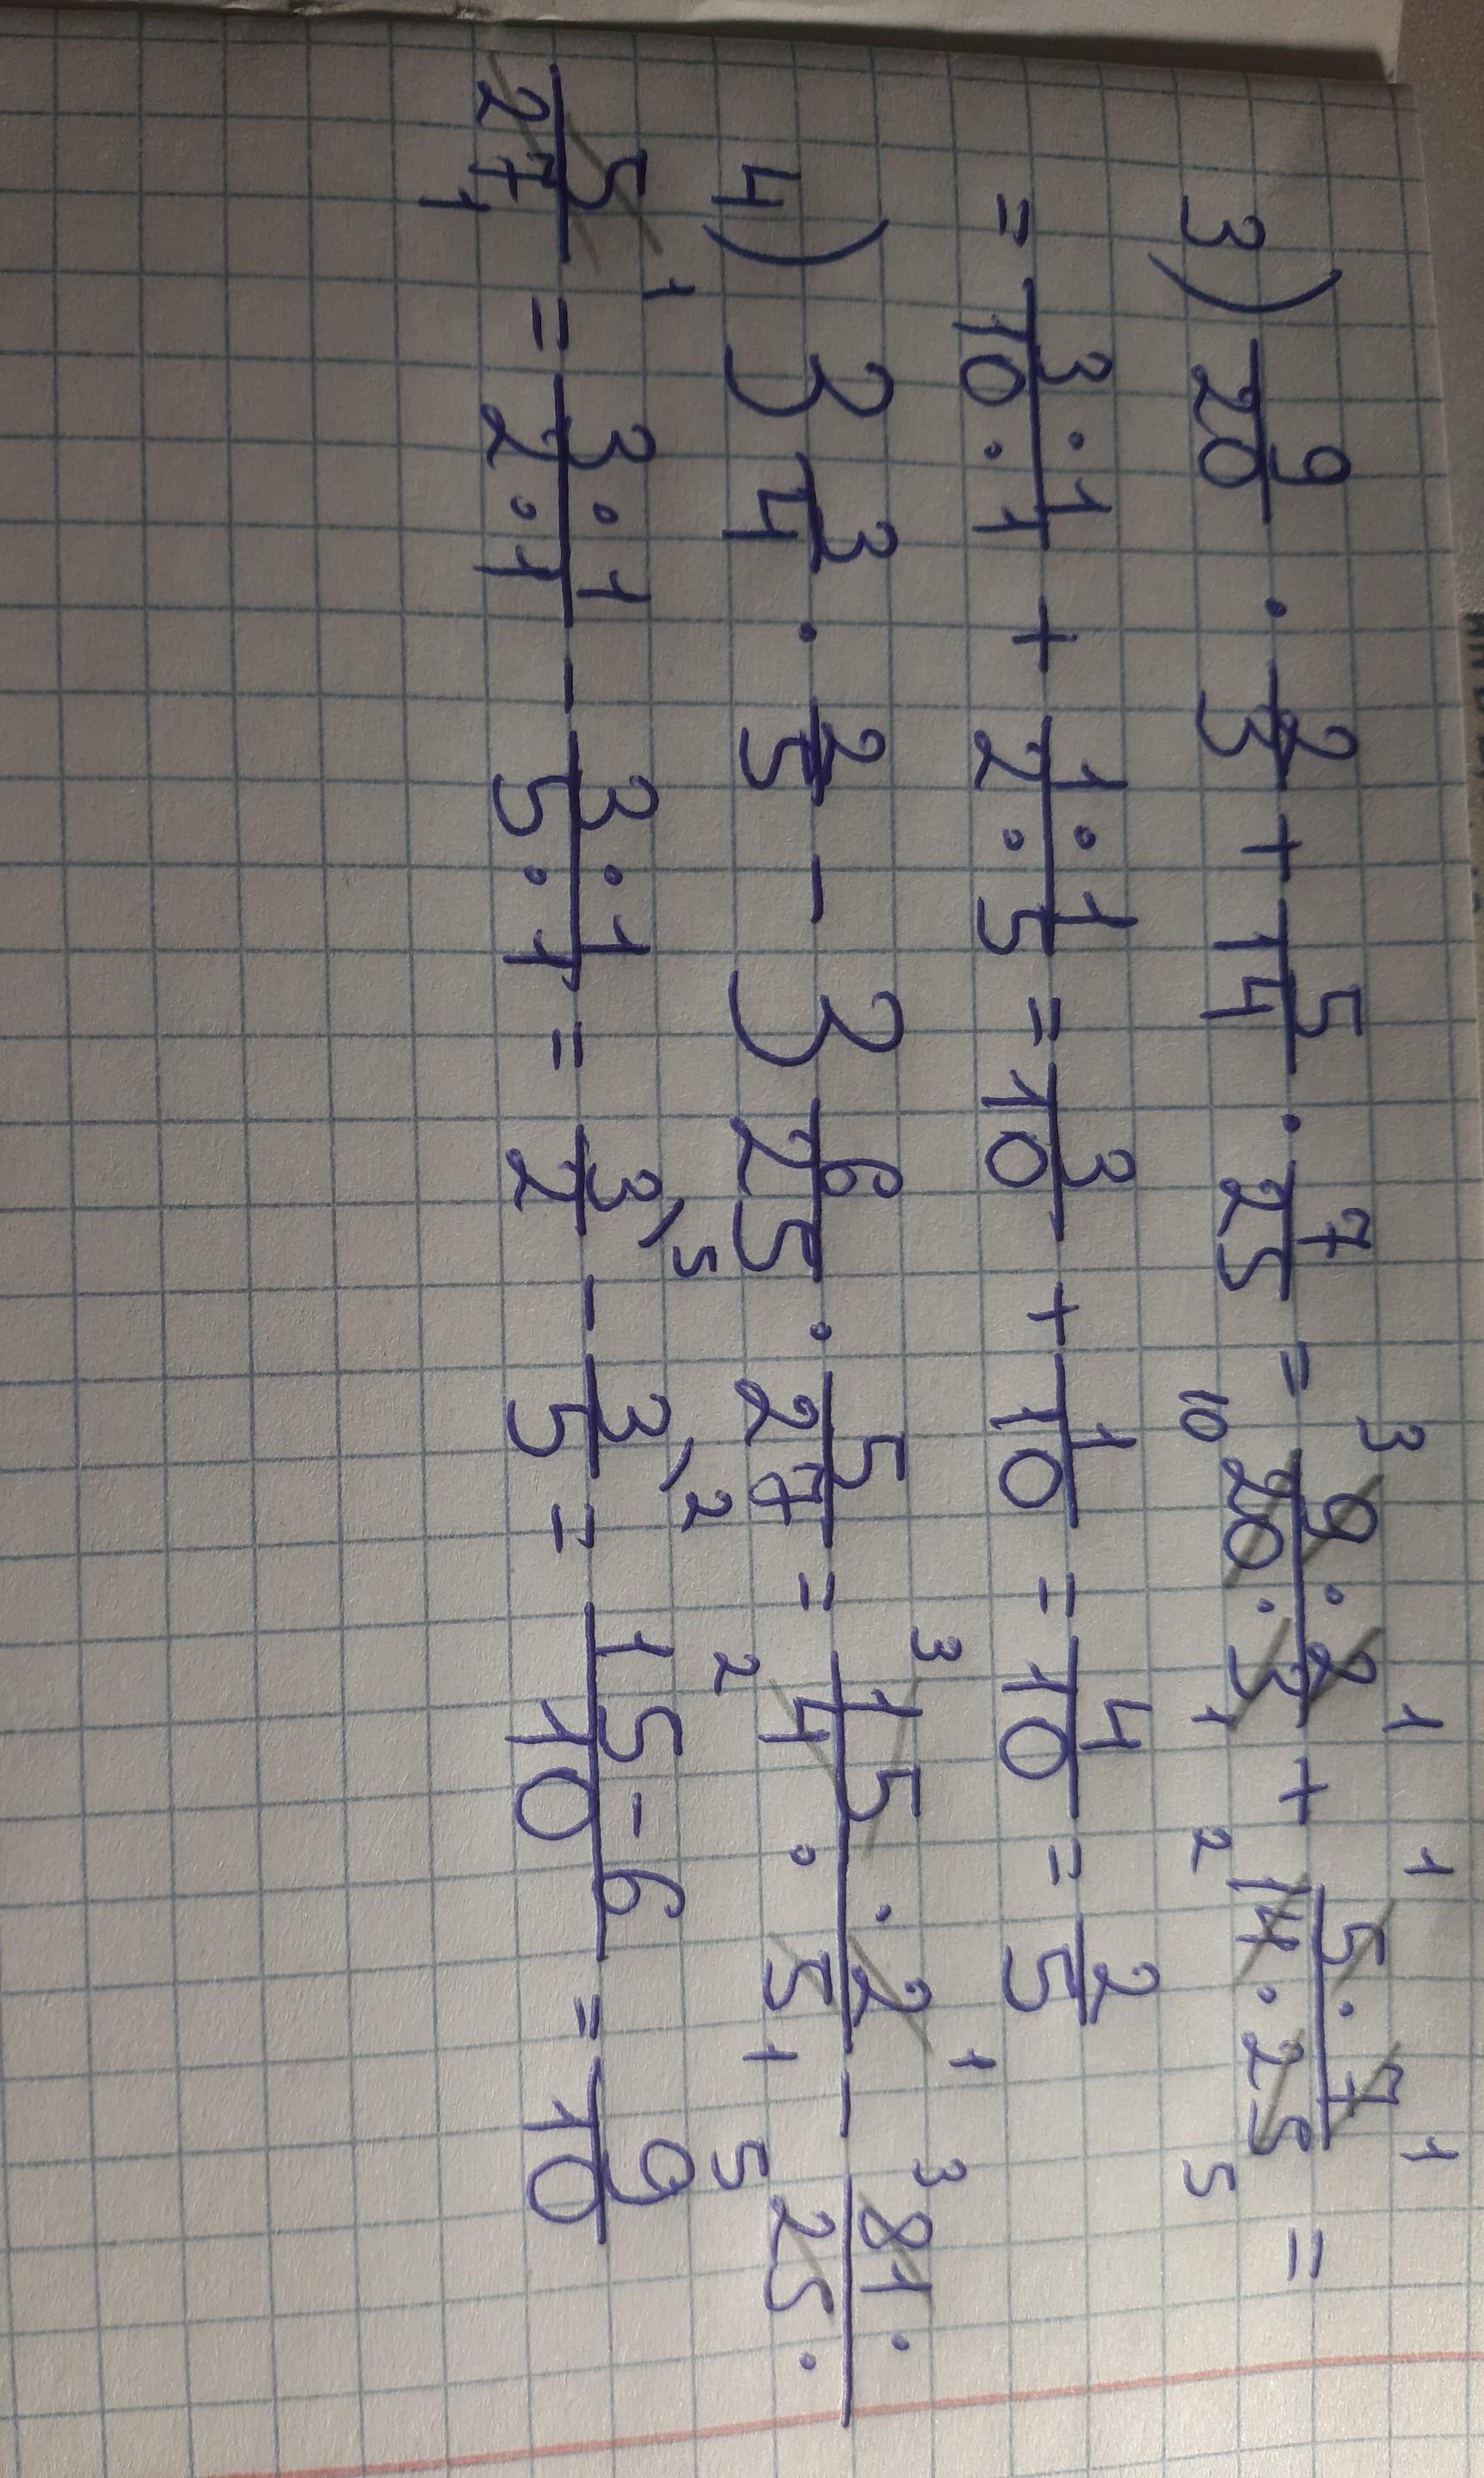 3) 9/20 · 2/3 + 5/14 · 7/25 = 3 9 · 2 1 / 10 20 · 3 1 + 1 5 · 7 1 / 2 14 · 25 5 =
= 3 · 1 / 10 · 1 + 1 · 1 / 2 · 5 = 3/10 + 1/10 = 4/10 = 2/5
4) 3 3/4 · 2/5 - 3 6/25 · 5/27 = 3 15 · 2 1 / 2 4 · 5 1 - 3 81 · / 5 25 ·
5 1 / 27 1 = 3 · 1 / 2 · 1 - 3 · 1 / 5 · 1 = 3\5 / 2 - 3\2 / 5 = 15 - 6 / 10 = 9/10